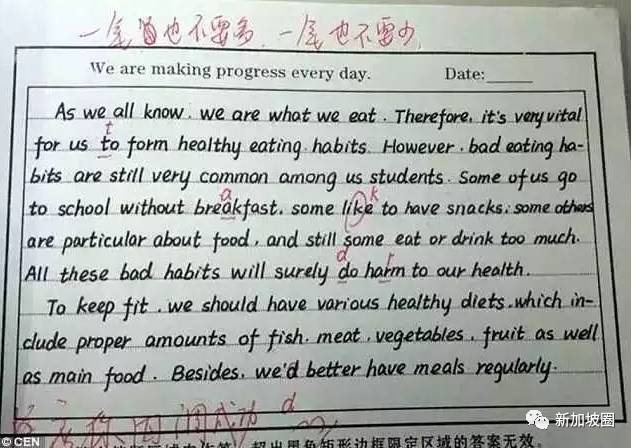 一尾ᅠ也不要多、一尾也不要少
We are making progress every day. Date:
As we all know, we are what we eat. Therefore, it's very vital
t
for us to form healthy eating habits. However, bad eating ha-
bits are still very common among us students. Some of us go
a k
to school without breakfast, some like to have snacks; some others
are particular about food, and still some eat or drink too much.
d r
All these bad habits will surely do harm to our health.
To keep fit, we should have various healthy diets, which in-
clude proper amounts of fish, meat, vegetables, fruit as well
as main food. Besides, we'd better have meals regularly.
d
超出黑色矩形边框限定区域的答案无效
© CEN
新加坡圈